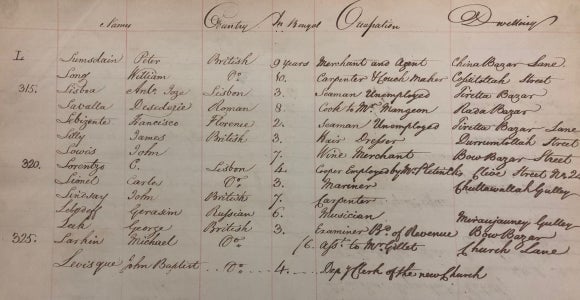 Names Country In Bengal Occupation Dwelling
L Lumsdain Peter British 9 years Merchant and Agent China Bazar Lane
Lang William Do. 10. Carpenter & Coach Maker Copitollah Street
315. Lisboa Anto. Joze Lisbon 3. Seaman Unemployed Tiretta Bazar
Lavalla Desederie Roman 8. Cook to Mr. Mangeon Rada Bazar
Lebizente Francisco Florence 2. Seaman Unemployed Tiretta Bazar Lane
Lilly James British 3. Hair Dresser Durrumtollah Street
Lowis John 7. Wine Merchant Bow Bazar Street
320. Lorentzo C. Lisbon 4. Cooper Employed by Mr. Clive Street No. 20
Lionel Carlo Do. 3. Mariner Chuttawallah Gulley
Lindsay John British 7. Carpenter
Lebedoff Gerasim Russian 6. Musician Miraujauney Gulley
Luh George British 3. Examiner Bd. of Revenue Bow Bazar
325. Larkin Michael Do. 16. Asst. to Mr. Gillet Church Lane
Levisque John Baptist Do. 4. Depy. Clerk of the new Church